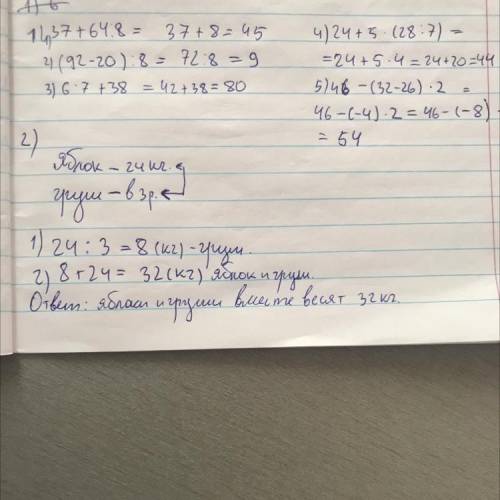 1) 1) 37+64:8 = 37+8=45
2) (92-20):8 = 72:8 = 9
3) 6·7+38 = 42+38=80
4) 24+5·(28:7) =
=24+5·4=24+20=44
5) 46-(32-26)·2 =
46-(-4)·2=46-(-8)
= 54
2)
Яблок – 24 кг.
груш – в 3 р.
1) 24:3=8(кг)-груш.
2) 8+24= 32(кг) яблок и груш.
Ответ: яблоки и груши вместе весят 32 кг.